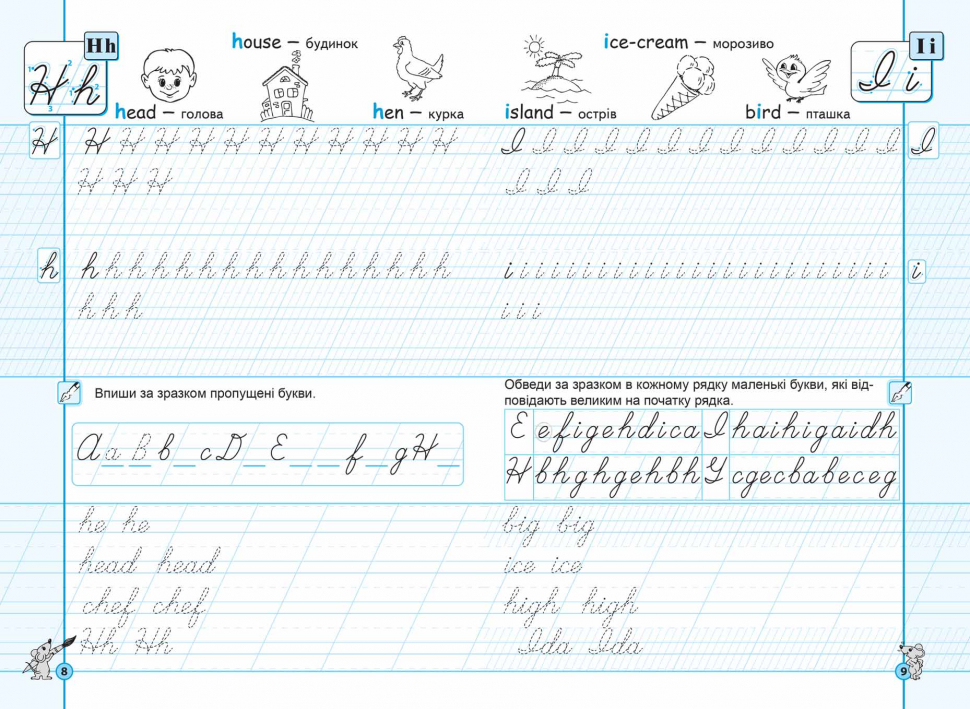 Hh
house – будинок
head – голова
hen – курка
H h
H H H H H H H H H H H H
H H H H
h h h h h h h h h h h h h h h h h
h h h h
Впиши за зразком пропущені букви.
A a B b _ c D _ E _ _ f _ g H _
he he
head head
chef chef
Hh Hh
8
ice-cream – морозиво
Ii
island – острів
bird – пташка
I i
I I I I I I I I I I I I I I
I I I
i i i i i i i i i i i i i i i i i i i i i i i i i i
i i i
Обведи за зразком в кожному рядку маленькі букви, які від-
повідають великим на початку рядка.
E efigehdica I haihigaidh
H bhghgehbh G cgecbabeceg
big big
ice ice
high high
Ida Ida
9